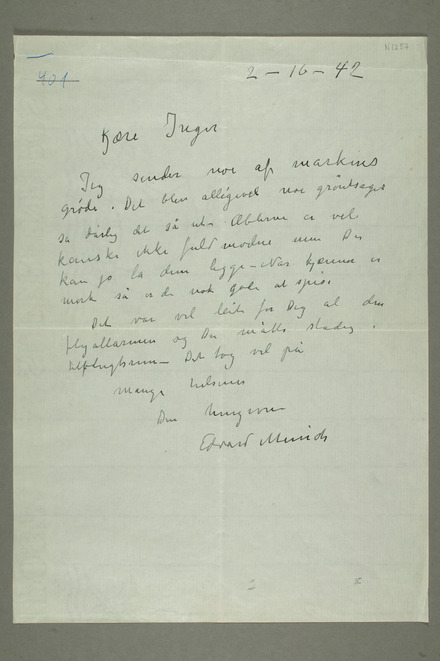 N1257
401
2-16-42
Kjære Inger
Jeg sender noe af markens
grøde. Det blev alligevel noe grøntsager
så dårlig det så ut. Æblerne er vel
kanske ikke fuldmodne men Du
kan jo la dem ligge – Når kjernen er
mørk så er de nok gode at spise
Det var vel leit for Dig al den
flyallarmen og Du måtte stadig i
tilflugtsrum – Det tog vel på
Mange hilsener
Din hengivne
Edvard Munch